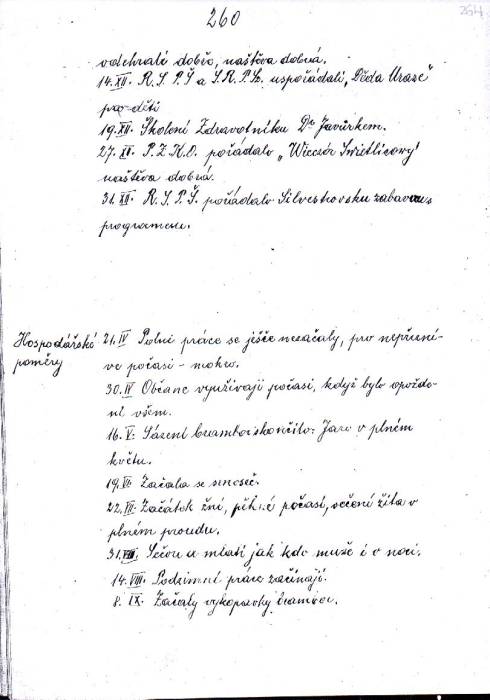 260
264
odehrali dobře, naštěva dobrá.
14.XII. R.S.P.Š a S.R.P.Š. uspořádali, "Děda Mraze"
pro děti
19.XII. Školení Zdravotníku Dr Javůrkem.
27.XII. P.Z.K.O. pořádalo "Wieczór Swietlicowy"
naštěva dobrá.
31.XII. R.S.P.Š. pořádalo Silvestrovsku zabavou s
programem.
Hospodářské
poměry
21.IV Polní práce se ješče nezačaly, pro nepřízni-
ve počasi - mokro.
30.IV Občane využívaji počasi, když bylo opoždě-
ní všem.
16.V. Sázení brambor skončilo. Jaro v plném
květu.
19.VI. Začala se senoseč.
22.VII. Začátek žní, pěkné počasí, sečení žita v
plném proudu.
31.VII. Sečou a mlatí jak kdo muže i v noci.
14.VIII. Podzimní práce začínají.
8.IX. Začaly vykopavky brambor.